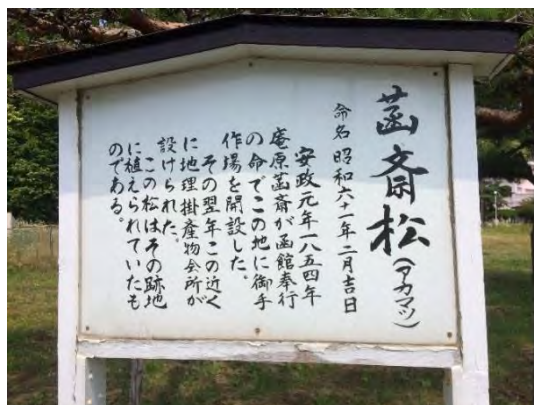 菡斎松(アカマツ)
命名 昭和六十一年二月吉日
安政元年一八五四年
庵原菡斎が函館奉行
の命でこの地に御手
作場を開設した。
その翌年この近く
に地理掛産物会所が
設けられた。
この松はその跡地
に植えられていたも
のである。